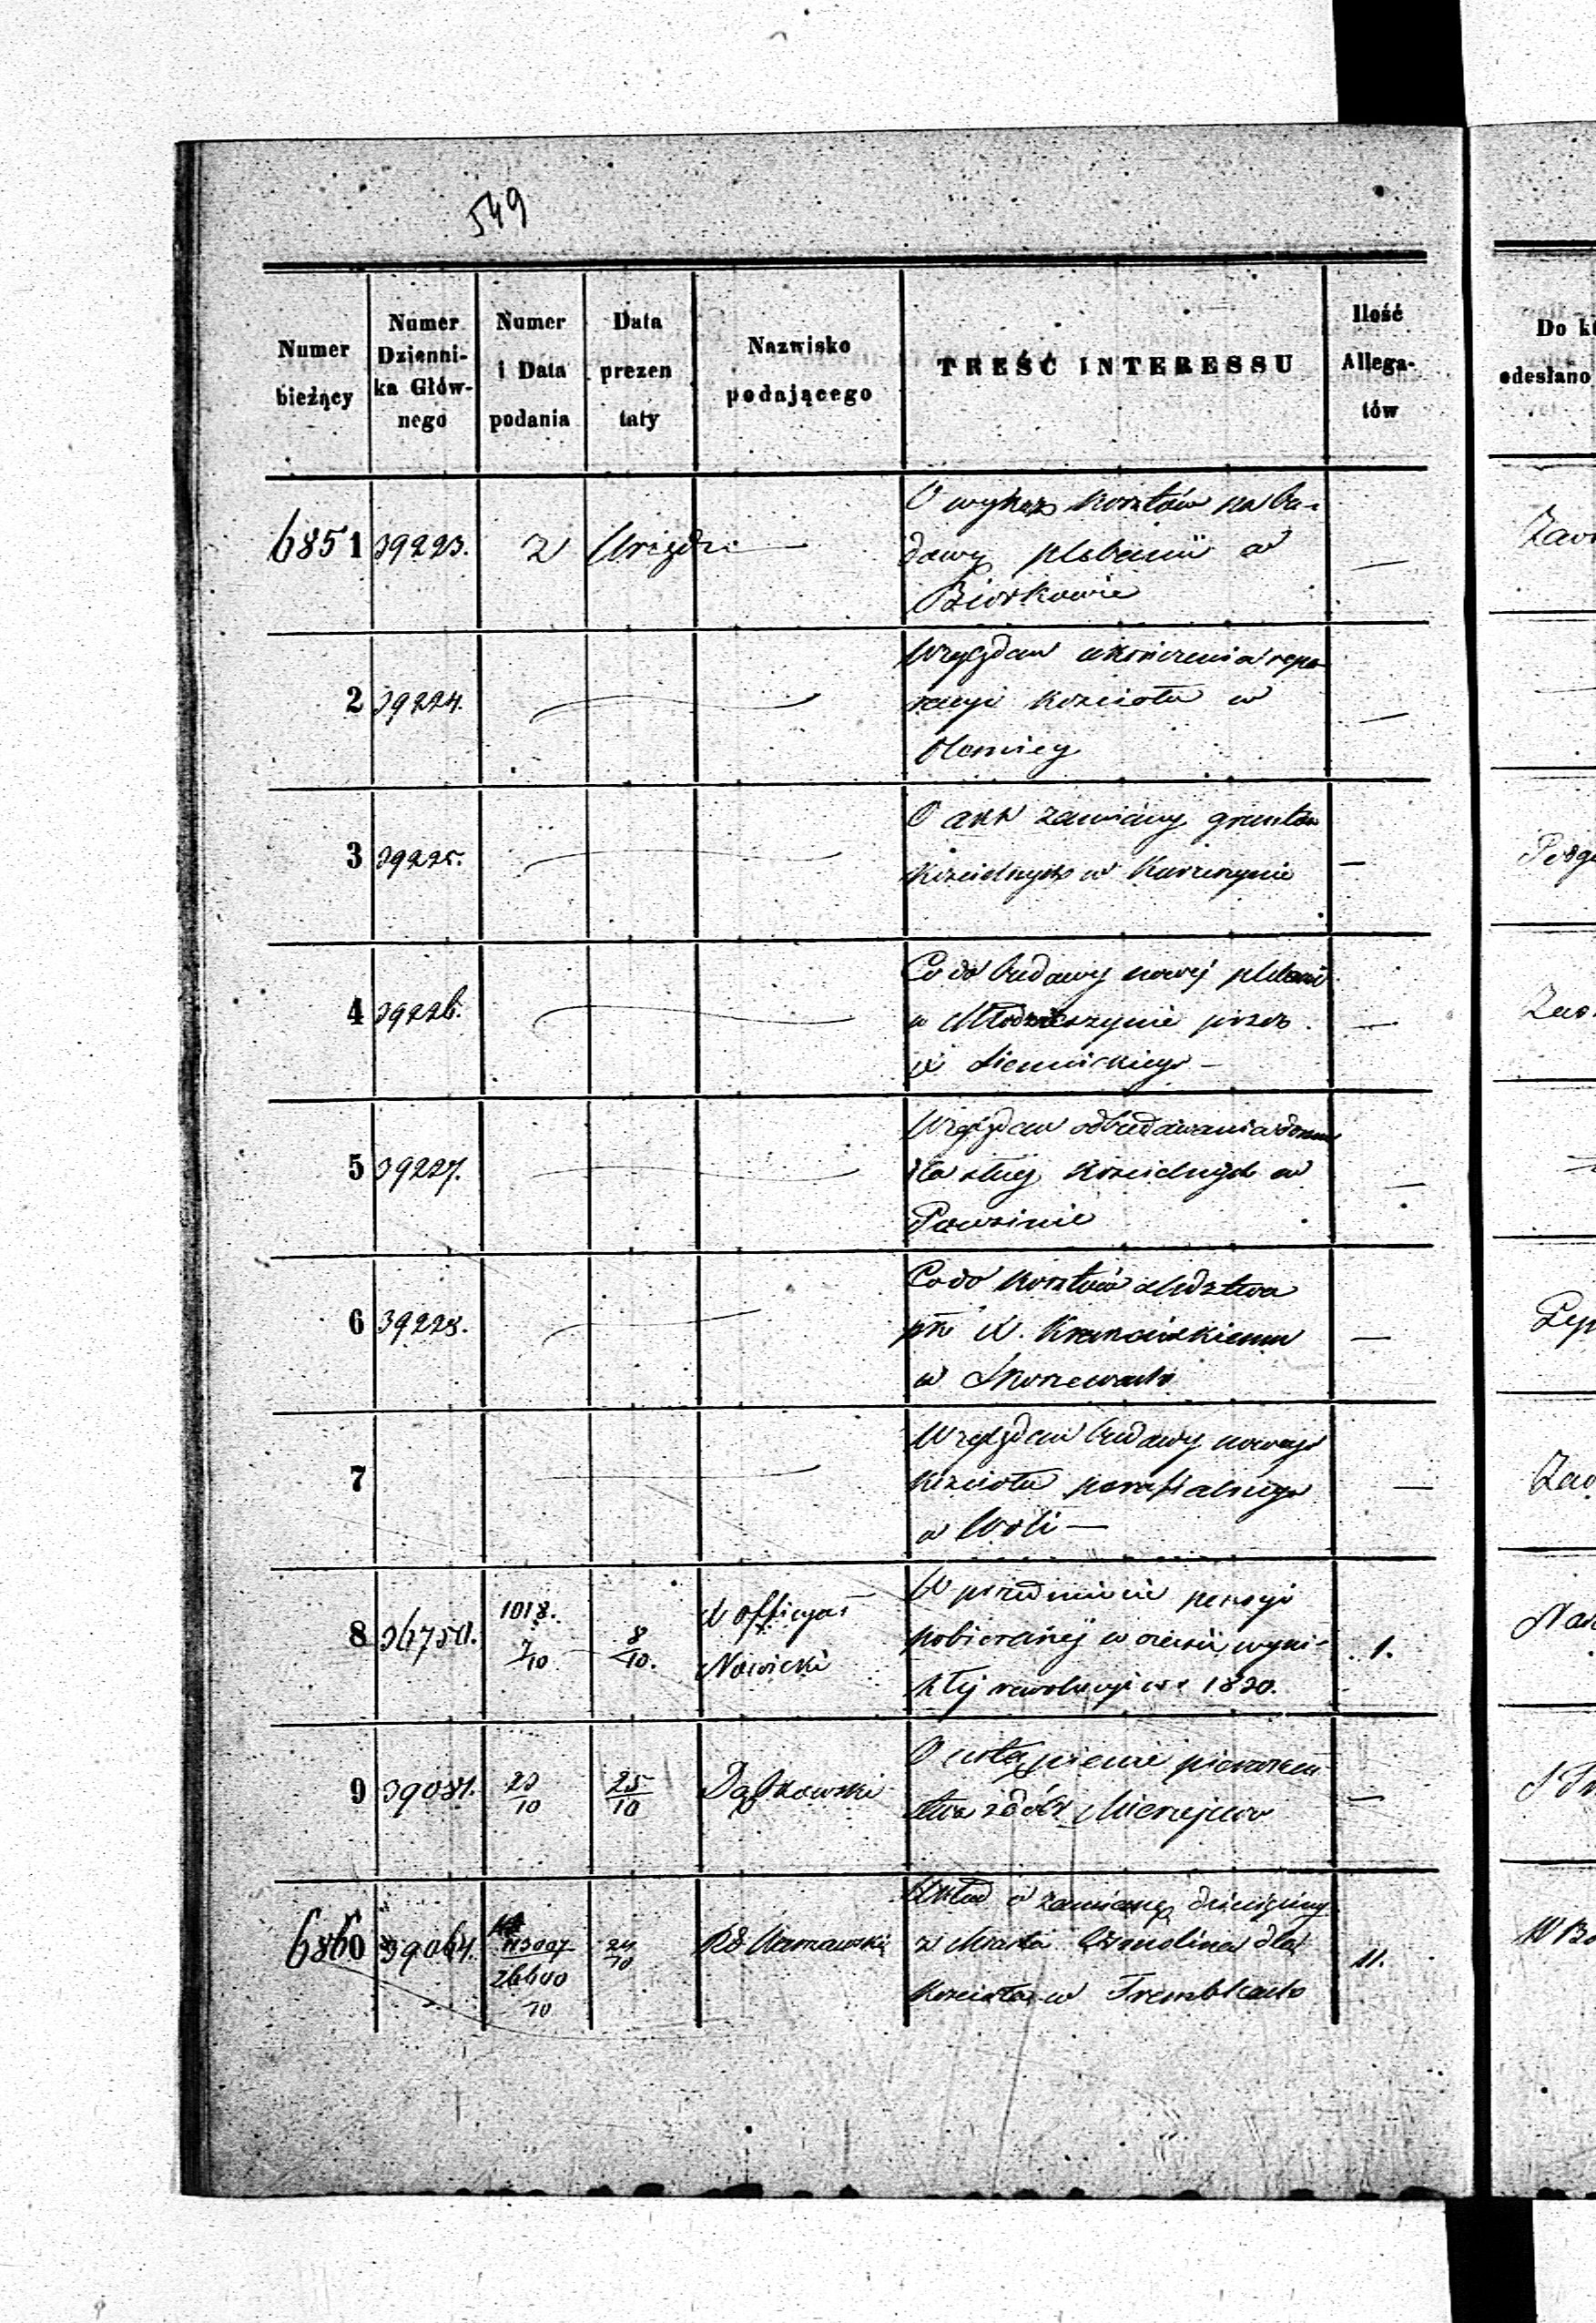 549
Numer bieżący | Numer Dzienni- ka Głów- nego | Numer i Data podania | Data prezen taty | Nazwisko podającego | TREŚĆ INTERESSU | Ilość Allega- tów | Do k
odesłano
6851 39223. z Urzędu — O wykaz kosztów na bu-
dowy plebanii w —
Biórkowie
2 39224. Względem ukończenia repa-
racyi kościoła w —
3 39225. O akt zamiany gruntów
kościelnych w —
4 39226. Co do budowy nowej plebanii
w Młodzieszynie przez —
X Siennickiego —
5 39227. Względem odbudowania domu
dla sług kościelnych w —
Powsinie
6 39228. Co do kosztów śledztwa
pko X. —
w
7 Względem budowy nowego
kościoła parafialnego —
w Woli —
8 36750. 1018. 7/10 8/10. X Officyał Nowicki W przedmiocie pensyi
pobieranej w czasie wyni- 1.
kłej rewolucyi w r 1830.
9 39051. 23/10 25/10 Dąbkowski O ustąpienie pierwszeń
stwa z dóbr —
6860 39064. 113007/26600 10 24/10 Rd Warszawski Układ o zamianę dziesięciny
z Miasta dla 11.
Kościoła w Trembkach